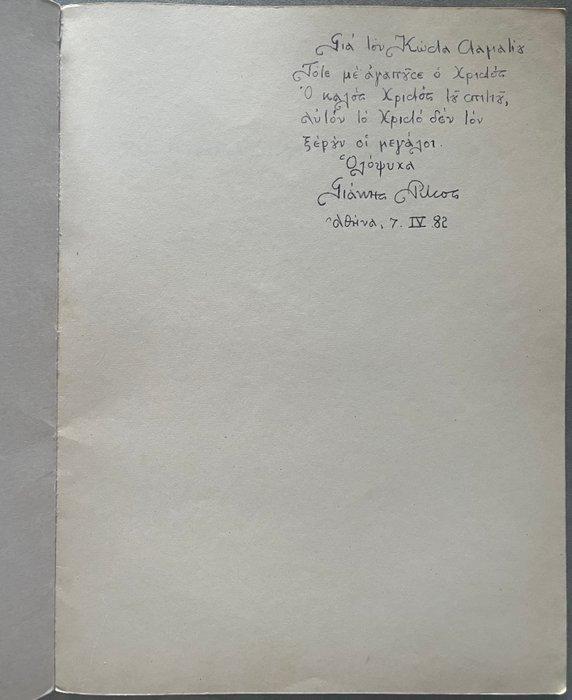 Γιά τόν Κώστα Σταματίου
Τότε μέ ἀγαποῦσε ὁ Χριστός
Ὁ καλός Χριστός τοῦ σπιτιοῦ,
αὐτόν τό Χριστό δέν τόν
ξέρουν οἱ μεγάλοι.
Ὁλόψυχα
Γιάννης Ρίτσος
Ἀθήνα, 7. IV. 82